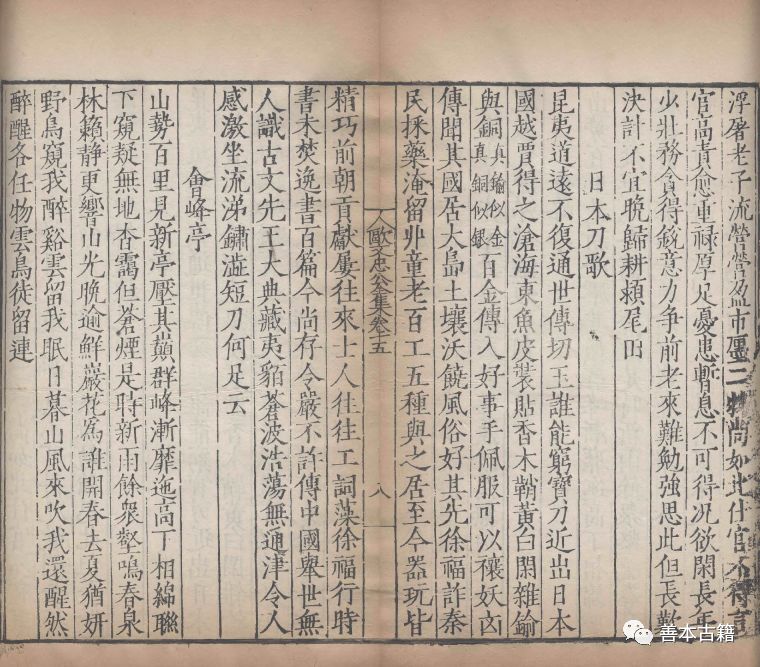 浮屠老子流營營盈市廛二物尚如此仕宦不待言
官高責愈重禄厚足憂患暫息不可得况欲閑長年
少壯務貪得銳意力争前老來難勉强思此但長歎
決計不宜晚歸耕潁尾田
日本刀歌
昆夷道遠不復通世傳切玉誰能窮寶刀近出日本
國越賈得之滄海東魚皮裝貼香木鞘黄白閑雜鍮
與銅真鍮似金真銅似銀百金傳入好事手佩服可以禳妖凶
傳聞其國居大島土壤沃饒風俗好其先徐福詐秦
民採藥淹留丱童老百工五種與之居至今器玩皆
歐文忠公集卷十五
八
精巧前朝貢獻屢往來士人往往工詞藻徐福行時
書未焚逸書百篇今尚存令嚴不許傳中國舉世無
人識古文先王大典藏夷貊蒼波浩蕩無通津令人
感激坐流涕鏽澁短刀何足云
會峰亭
山勢百里見新亭壓其巔群峰漸靡迤高下相綿聯
下窺疑無地杳靄但蒼煙是時新雨餘衆壑鳴春泉
林籟静更響山光晚逾鮮巖花爲誰開春去夏猶妍
野鳥窺我醉谿雲留我眠日暮山風來吹我還醒然
醉醒各任物雲鳥徒留連
善本古籍